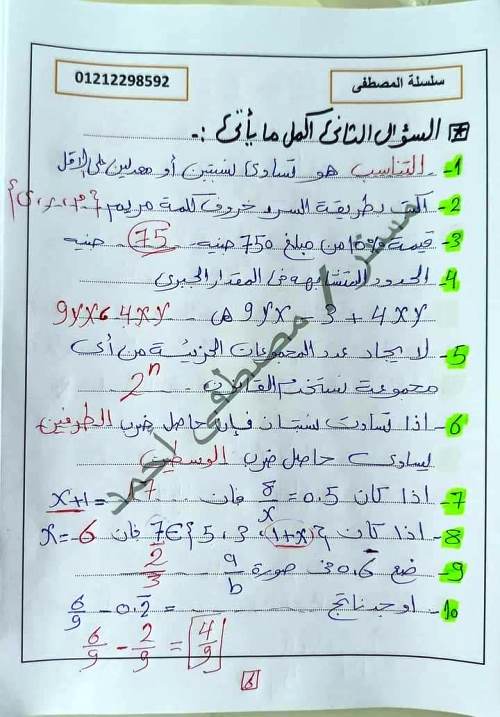 سلسلة المصطفى
01212298592
السؤال الثانى / اكمل ما يأتى / :-
1- التناسب هو تساوى نسبتين أو معدلين على الاقل
2- اكتب بطريقة السرد حروف كلمة مريم {م، ر، ى}
3- قيمة 10% من مبلغ 750 جنيه 75 جنيه
4- الحدود المتشابهه فى المقدار الجبرى
9yx - 3 + 4xy هى 4xy ، 9yx
5- لايجاد عدد المجموعات الجزئية من أى
مجموعة نستخدم القانون 2ⁿ
6- اذا تساوت نسبتان فإن حاصل ضرب الطرفين
يساوى حاصل ضرب الوسطين
7- اذا كان 8/x = 0.5 فان x+1 =
8- اذا كان 7 ∈ {5 ، 3 ، 1+x} فان x = 6
9- ضع 0.6̄ فى صورة a/b 2/3
10- اوجد ناتج 6/9 - 0.2̄ =
6/9 - 2/9 = 4/9
مستر / مصطفى احمد
6